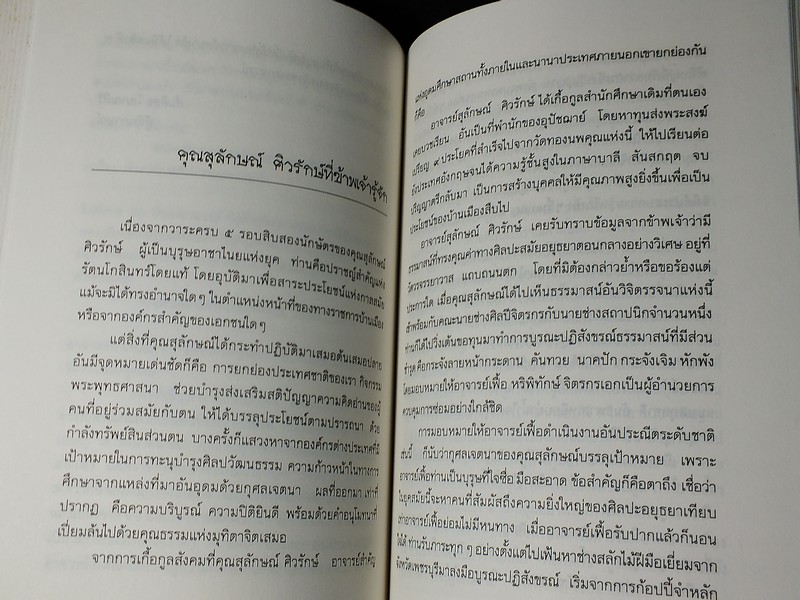 คุณสุลักษณ์ ศิวรักษ์ที่ข้าพเจ้ารู้จัก
เนื่องจากวาระครบ ๕ รอบสิบสองนักษัตรของคุณสุลักษณ์
ศิวรักษ์ ผู้เป็นบุรุษอาชาไนยแห่งยุค ท่านคือปราชญ์สำคัญแห่ง
รัตนโกสินทร์โดยแท้ โดยอุบัติมาเพื่อสาระประโยชน์แห่งกาลสมัย
แม้จะมิได้ทรงอำนาจใดๆ ในตำแหน่งหน้าที่ของทางราชการบ้านเมือง
หรือจากองค์กรสำคัญของเอกชนใดๆ
แต่สิ่งที่คุณสุลักษณ์ได้กระทำปฏิบัติมาเสมอต้นเสมอปลาย
อันมีจุดหมายเด่นชัดก็คือ การยกย่องประเทศชาติของเรา กิจกรรม
พระพุทธศาสนา ช่วยบำรุงส่งเสริมสติปัญญาความคิดอ่านของผู้
คนที่อยู่ร่วมสมัยกับตน ให้ได้บรรลุประโยชน์ตามปรารถนา ด้วย
กำลังทรัพย์สินส่วนตน บางครั้งก็แสวงหาจากองค์กรต่างประเทศที่มี
เป้าหมายในการทะนุบำรุงศิลปวัฒนธรรม ความก้าวหน้าในทางการ
ศึกษาจากแหล่งที่มาอันอุดมด้วยกุศลเจตนา ผลที่ออกมา เท่าที่
ปรากฏ คือความบริบูรณ์ ความปีติยินดี พร้อมด้วยคำอนุโมทนาที่
เปี่ยมล้นไปด้วยคุณธรรมแห่งมุทิตาจิตเสมอ
จากการเกื้อกูลสังคมที่คุณสุลักษณ์ ศิวรักษ์ อาจารย์สำคัญ
แห่งอุดมศึกษาสถานทั้งภายในและนานาประเทศภายนอกเขายกย่องกัน
ก็คือ อาจารย์สุลักษณ์ ศิวรักษ์ ได้เกื้อกูลสำนักศึกษาเดิมที่ตนเอง
เคยบวชเรียน อันเป็นที่พำนักของอุปัชฌาย์ โดยหาทุนส่งพระสงฆ์
เปรียญ ๙ ประโยคที่สำเร็จไปจากวัดทองนพคุณแห่งนี้ ให้ไปเรียนต่อ
ยังประเทศอังกฤษจนได้ความรู้ชั้นสูงในภาษาบาลี สันสกฤต จบ
ปริญญาตรีกลับมา เป็นการสร้างบุคคลให้มีคุณภาพสูงยิ่งขึ้นเพื่อเป็น
ประโยชน์ของบ้านเมืองสืบไป
อาจารย์สุลักษณ์ ศิวรักษ์ เคยรับทราบข้อมูลจากข้าพเจ้าว่ามี
ธรรมาสน์ที่ทรงคุณค่าทางศิลปะสมัยอยุธยาตอนกลางอย่างวิเศษ อยู่ที่
วัดวรจรรยาวาส แถบถนนตก โดยที่มิต้องกล่าวย้ำหรือขอร้องแต่
ประการใด เมื่อคุณสุลักษณ์ได้ไปเห็นธรรมาสน์อันวิจิตรรจนาแห่งนี้
เข้าพร้อมกับคณะนายช่างศิลป์จิตรกรกับนายช่างสถาปนิกจำนวนหนึ่ง
ท่านก็ได้ไปวิ่งเต้นขอทุนมาทำการบูรณะปฏิสังขรณ์ธรรมาสน์ที่มีส่วน
ชำรุด คือกระจังลายหน้ากระดาน คันทวย นาคปัก กระจังเจิม หักพัง
โดยมอบหมายให้อาจารย์เฟื้อ หริพิทักษ์ จิตรกรเอกเป็นผู้อำนวยการ
ควบคุมการซ่อมอย่างใกล้ชิด
การมอบหมายให้อาจารย์เฟื้อดำเนินงานอันประณีตระดับชาติ
เช่นนี้ ก็นับว่ากุศลเจตนาของคุณสุลักษณ์บรรลุเป้าหมาย เพราะ
อาจารย์เฟื้อท่านเป็นบุรุษที่ใจซื่อ มือสะอาด ข้อสำคัญก็คือตาถึง เชื่อว่า
ในยุคสมัยนี้จะหาคนที่สัมผัสถึงความยิ่งใหญ่ของศิลปะอยุธยาเทียบ
เท่าอาจารย์เฟื้อย่อมไม่มีหนทาง เมื่ออาจารย์เฟื้อรับปากแล้วก็นอน
ใจได้ ท่านรับภาระทุกๆ อย่างตั้งแต่ไปเฟ้นหาช่างสลักไม้ฝีมือเยี่ยมจาก
จังหวัดเพชรบุรีมาลงมือบูรณะปฏิสังขรณ์ เริ่มจากการก้อปปี้จำหลัก